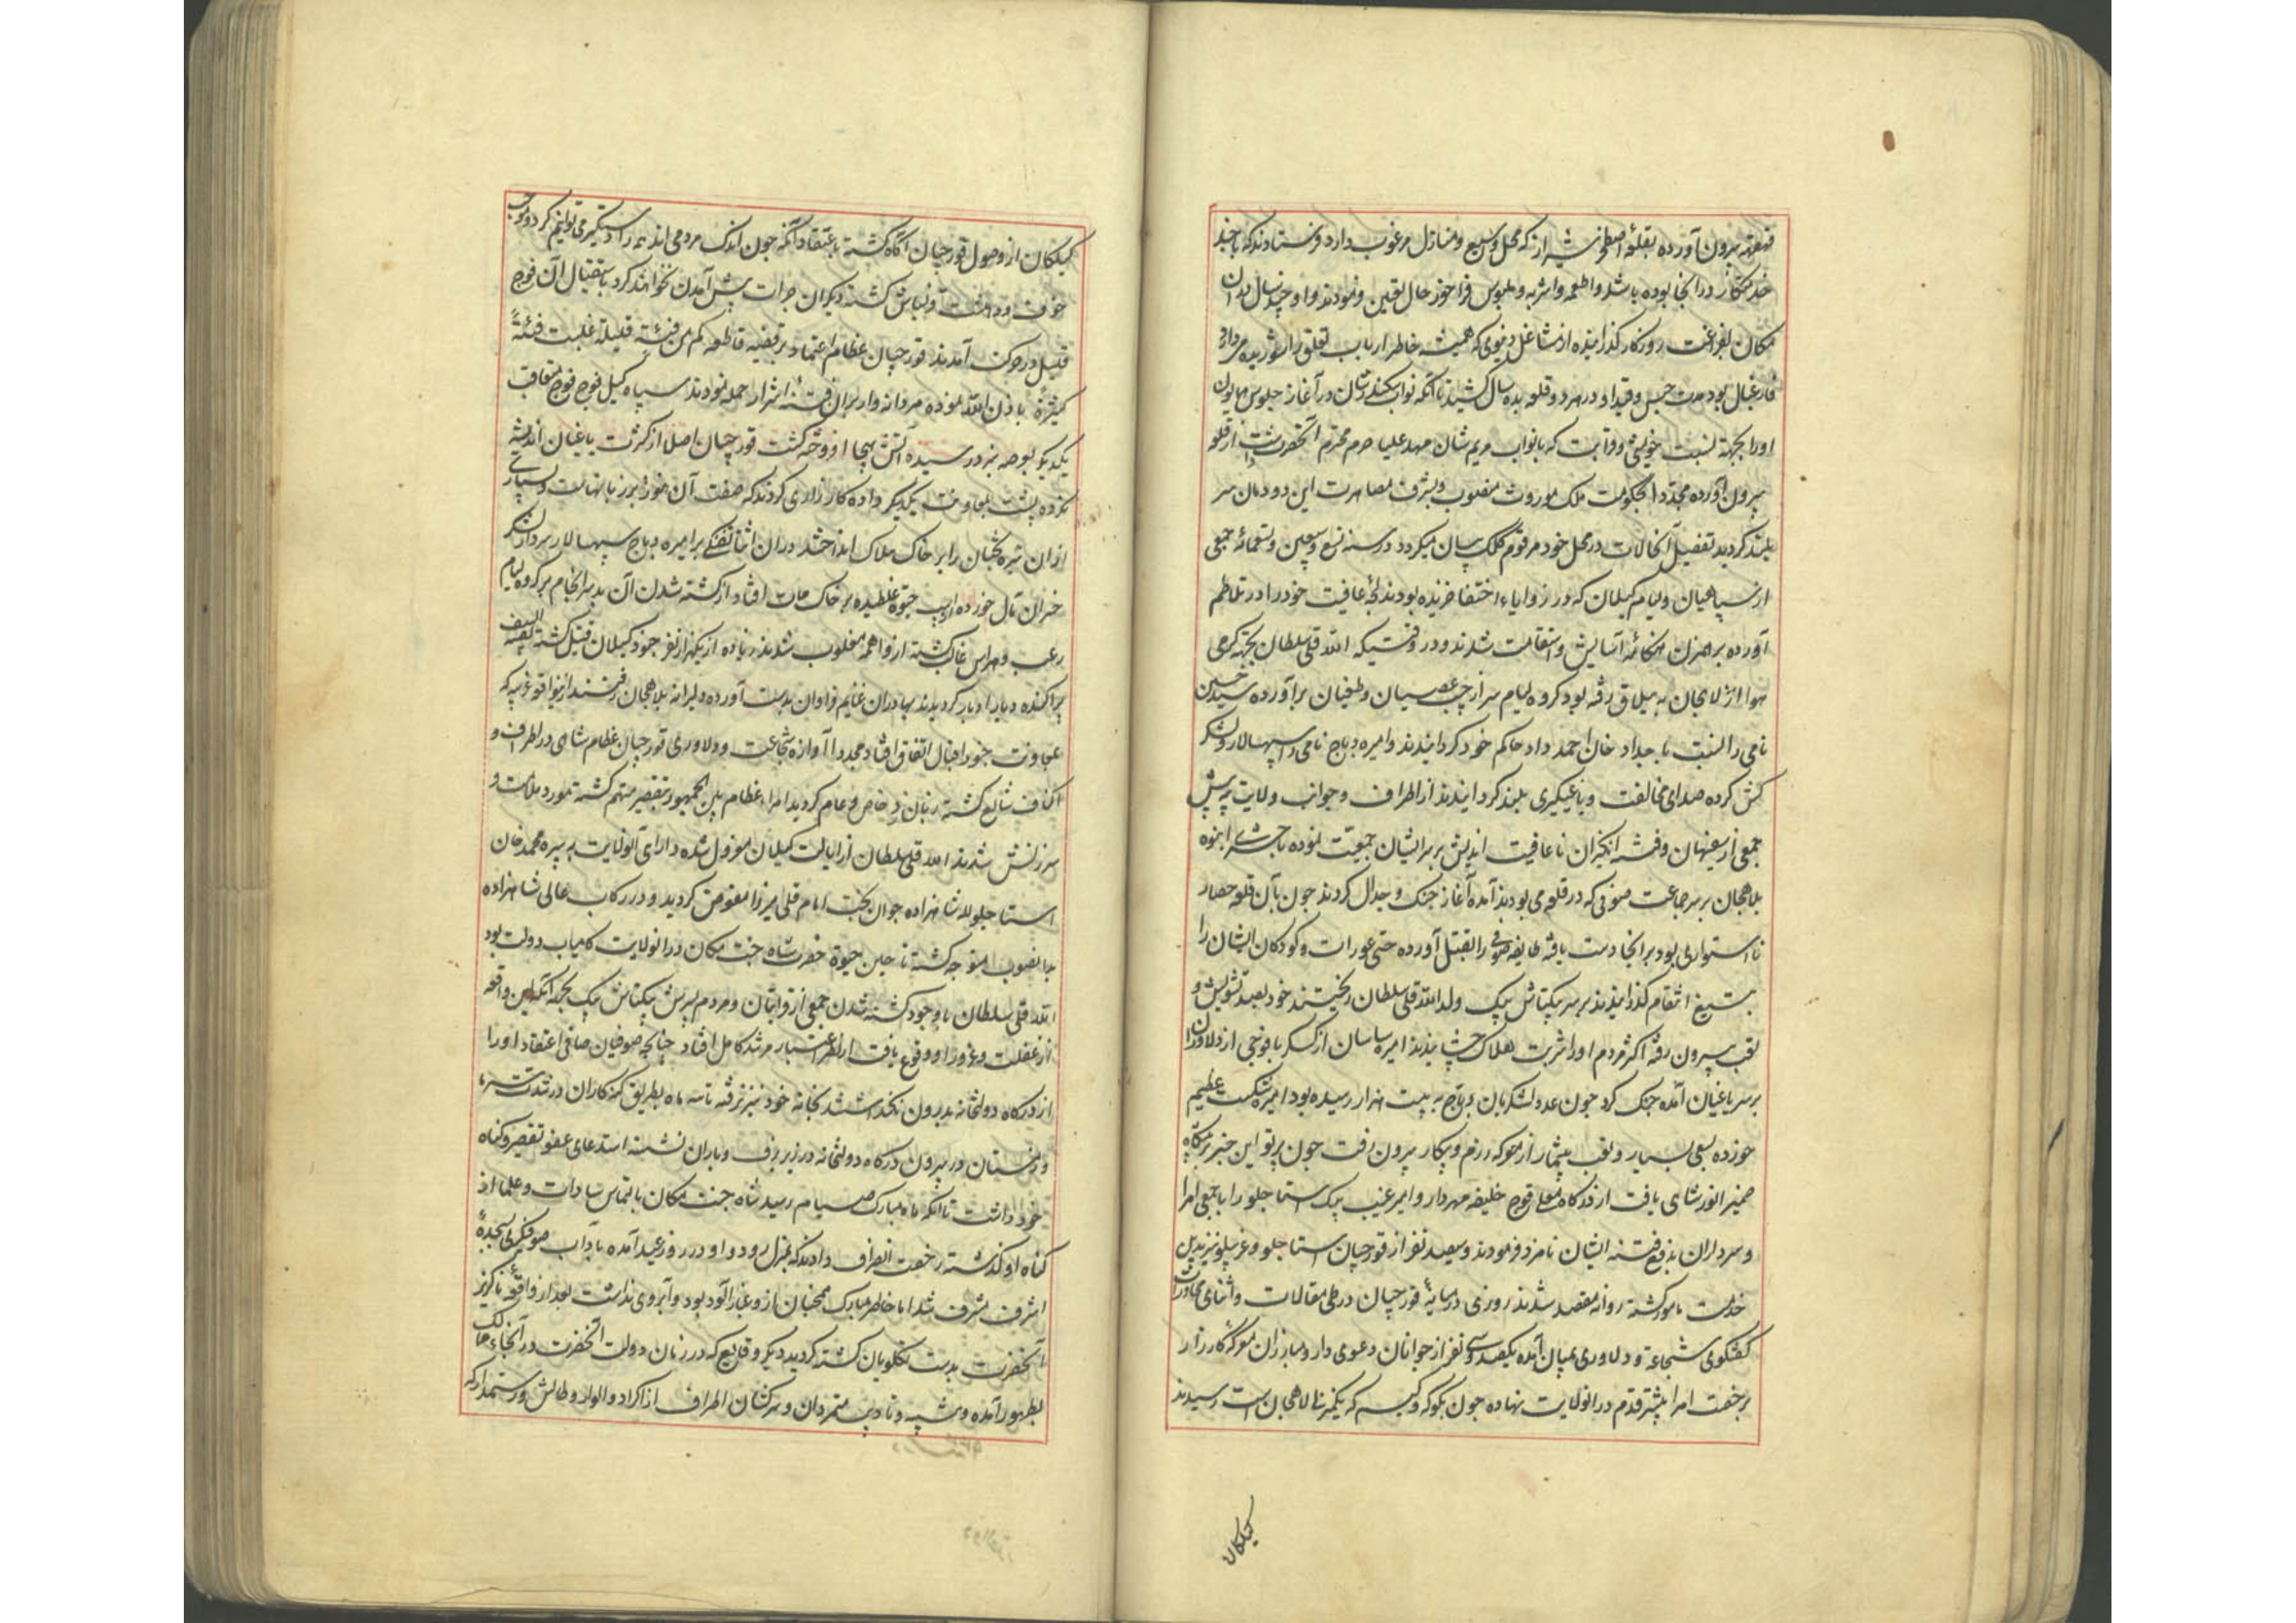 قهقهه بیرون آورده بقلعهٔ اصطخر شیراز که محل وسیع و منازل مرغوب دارد فرستادند که با چند
خدمتکار در انجا بوده باشد و اطعمه و اشربه و ملبوس فراخور حال تعیین فرمودند و او چند سال در ان
مکان بفراغت روزکار کذرانیده از مشاغل دنیوی که همیشه خاطر ارباب تعلق را شوریده میدارد
فارغبال بود مدت حبس و قید او در هر دو قلعه بده سال کشید تا آنکه نواب سکندر شان در آغاز جلوس همایون
اورا بجهة نسبت خویشی و قرابت که با نواب مریم شان مهد علیا حرم محترم آنحضرت داشت از قلعه
بیرون آورده مجدّدا بحکومت ملک موروث منصوب و بشرف مصاهرت این دودمان سر
بلند کردید تفصیل آنحالات در محل خود مرقوم کلک بیان میکردد در سنه تسع و سبعین و تسعمائه جمعی
از سپاهیان و لیام کیلان که در زوایاء اختفا خزیده بودند لجهٔ عافیت خود را در تلاطم
آورده برهمزن هنکامهٔ آسایش و استقامت شدند و در وقتیکه الله قلی سلطان بجهة کرمی
هوا از لاهجان به ییلاق رفته بود کروه لیام سر از جیب عصیان و طغیان برآورده سید حسین
نامی را که نسبت باجداد خان احمد داد حاکم خود کردانیدند و امیره دباج نامی را سپهسالار و لشکر
کش کرده صدای مخالفت و یاغیکیری بلند کردانیدند از اطراف و جوانب ولایت بیه پس
جمعی از سفیهان و فتنه انکیزان ناعاقبت اندیش بر سر ایشان جمعیّت نموده با حشری انبوه
بلاهجان بر سر جماعت صوفی که در قلعه می بودند آمده آغاز جنک و جدال کردند چون بآن قلعه حصار
نا استواری بود بر انجا دست یافته طایفه صوفی را بقتل آورده حتی عورات و کودکان ایشان را
بتیغ انتقام کذرانیدند بر سر بیکتاش بیک ولد الله قلی سلطان ریختند خود بصد تشویش و
تعب بیرون رفته اکثر مردم اورا شربت هلاک چشانیدند امیره ساسان از کسکر با فوجی از دلاوران
بر سر یاغیان آمده جنک کرد چون عدد لشکریان دباج به بیست هزار رسیده بود امیره شکست عظیم
خورده بسعی بسیار و تعب بیشمار از معرکه رزم و پیکار بیرون رفت چون پرتو این خبر بر پیشکاه
ضمیر انور شاهی یافت از درکاه معلی قوج خلیفه مهردار و امیر غیب بیک استاجلو را با جمعی امرا
و سرداران بدفع فتنه ایشان نامزد فرمودند و سیصد نفر از قورچیان استاجلو و غیره نیز بدین
خدمت مامور کشته روانه مقصد شدند روزی در میانهٔ قورچیان در طی مقالات و اثنای محاورات
کفتکوی شجاعة و دلاوری بمیان آمده یکصد و سی نفر از جوانان دعوی دار و مبارزان معرکهٔ کارزار
برخصت امرا پیشتر قدم در انولایت نهاده چون بکوکه و کیسم که یکمنزلی لاهجان است رسیدند
کیلکان
کیلکان از وصول قورچیان آکاه کشته باعتقاد آنکه چون اندک مردمی اند همه را دستکیر می توانیم کرد و موجب
خوف و دهشت اوباش کشته دیکران جرات پیش آمدن نخواهند کرد باستقبال آن فوج
قلیل در حرکت آمدند قورچیان عظام اعتماد بر قضیه قاطعه کم من فئة قلیلة غلبت فئةً
کثیرةً باذن الله نموده مردانه وار بران فتنه اشرار حمله نمودند سپاه کیل فوج فوج متعاقب
یکدیکر بعرصه نبرد رسیده آتش هیجا افروخته کشت قورچیان اصلا از کثرت یاغیان اندیشه
نکرده پشت بمعاونت یکدیکر داده کارزاری کردند که صفت آن نمودار روز با نهایت و بسیاری
ازان تیره بختان را بر خاک هلاک انداختند دران اثنا تفنکی بر امیره دباج سپهسالار سردار لشکر
خسران مآل خورده از اسب حیوة غلطیده بر خاک ممات افتاد از کشته شدن آن بد سرانجام بر کروه لیام
رعب و هراس غالب کشته از واهمه مغلوب شدند زیاده از یکهزار نفر جنود کیلان قتیل کشته بقیة السیف
پراکنده دیار ادبار کردیدند بهادران غنایم فراوان بدست آورده دلیرانه بلاهجان رفتند از نوا قع غریبه که
بمعاونت جنود اقبال اتفاق افتاد مجددا آوازه شجاعت و دلاوری قورچیان عظام شاهی در اطراف و
اکناف شایع کشته زبان زد خاص و عام کردید امراء عظام بین الجمهور بتقصیر متهم کشته مورد ملامت و
سرزنش شدند الله قلی سلطان از ایالت کیلان معزول شده دارای آنولایت به پیره محمد خان
استاجلو لله شاهزاده جوان بخت امام قلی میرزا مفوض کردید و در رکاب عالی شاهزاده
بدانصوب متوجه کشته تا حین حیوة حضرت شاه جنت مکان در انولایت کامیاب دولت بود
الله قلی سلطان با وجود کشته شدن جمعی از قرابتان و مردم پسرش بیکتاش بیک بجهة آنکه این واقعه
از غفلت و غرور او وقوع یافت از نظر اعتبار مرشد کامل افتاد چنانچه صوفیان صافی اعتقاد او را
از درکاه دولتخانه بدرون نکذاشتند بخانه خود نیز نرفته تا سه ماه بطریق کنه کاران در شدت سرما
و زمستان در بیرون درکاه دولتخانه در زیر برف و باران نشسته استدعای عفو تقصیر و کناه
خود داشت تا آنکه ماه مبارک صیام رسید شاه جنت مکان بالتماس سادات و علما از
کناه او کذشته رخصت انصراف دادند که بمنزل رود و او در روز عید آمده بآداب صوفیکری بسجدهٔ
اشرف مشرف شد اما خاطر مبارک همچنان ازو غبار آلود بود و آبروی نداشت بعد از واقعهٔ ناکزیر
آنحضرت بدست تکلویان کشته کردید دیکر وقایع که در زمان دولت آنحضرت در آنجاء ممالک
بظهور آمده و تنبیه و تادیب متمردان و سرکشان اطراف از اکراد و الوار و طالش و رستمدار که